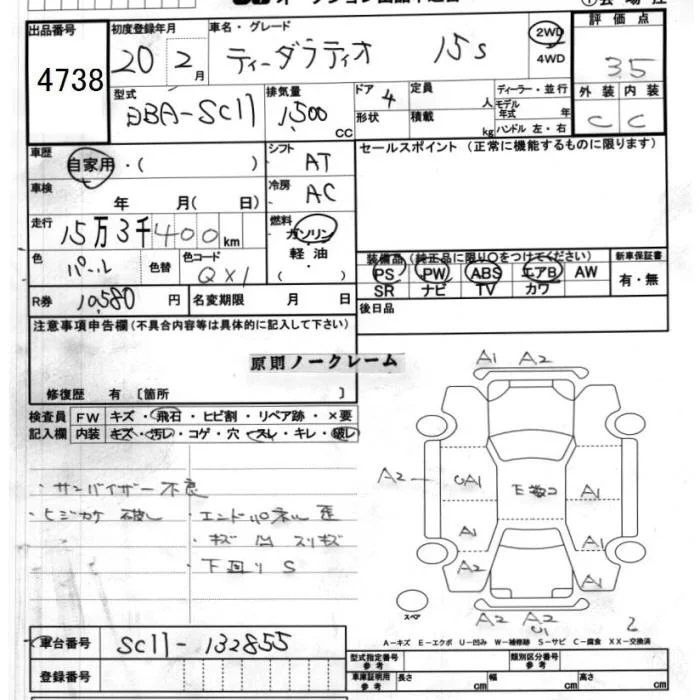 出品番号
4738
初度登録年月
20 2月
車名・グレード
ティーダラティオ 15s
2WD
4WD
評価点
3.5
外装 内装
C C
型式
DBA-SC11
排気量
1,500 CC
ドア
4
形状
定員 人
積載 kg
ディーラー・並行
モデル年式 年
ハンドル 左・右
車歴
自家用・( )
シフト
AT
セールスポイント (正常に機能するものに限ります)
車検
年 月( 日)
冷房
AC
走行
15万3千400km
燃料
ガソリン
軽油
( )
色
パール
色替
色コード
QX1
装備品 (純正品に限り○をつけてください)
新車保証書
PS PW ABS エアB AW
SR ナビ TV カワ
有・無
R券
10,580円
名変期限 月 日
後日品
注意事項申告欄(不具合内容等は具体的に記入して下さい)
原則ノークレーム
修復歴 有 [箇所 ]
検査員 FW キズ・飛石・ヒビ割・リペア跡・×要
記入欄 内装 キズ・汚レ・コゲ・穴・スレ・キレ・破レ
・サンバイザー不良
・ヒジカケ 破レ ・エンドパネル 歪
・キズ 凹 スリキズ
・下回り S
A1 A2
A2 A1 A1
A1 A1
A2 A1
A2 A2
スペア
2
A-キズ E-エクボ U-凹み W-補修跡 S-サビ C-腐食 XX-交換済
車台番号
SC11-132855
登録番号
型式指定番号 参考
類別区分番号 参考
車庫証明用 参考
長さ cm
幅 cm
高さ cm